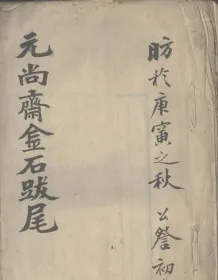 昉於庚寅之秋 公詧初
元尚齋金石跋尾